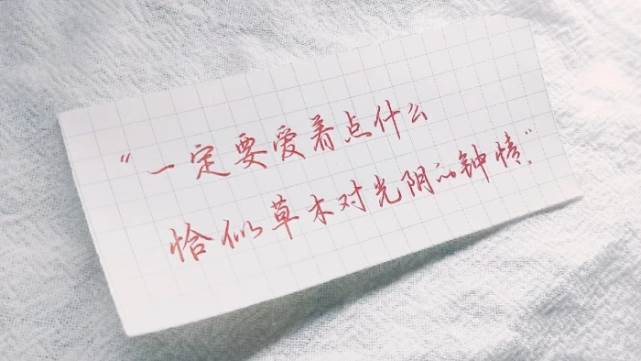 “一定要爱着点什么
恰似草木对光阴的钟情”